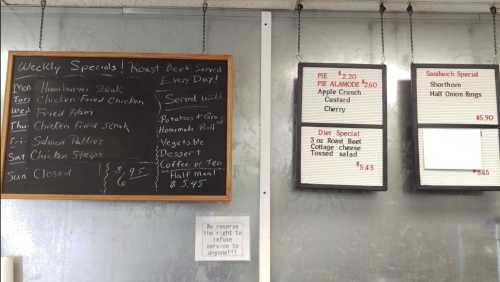 Weekly Specials! Roast Beef Served
Every Day!
Mon Hamburger Steak
Tues Chicken Fried Chicken
Wed Fried Ham
Thu Chicken Fried Steak
Fri Salmon Patties
Sat Chicken Strips
Sun Closed
Served with
Potatoes & Gravy
Homemade Roll
Vegetable
Dessert
Coffee or Tea
Half Meal
$ 5.45
PIE $2.20
PIE ALAMODE $2.60
Apple Crunch
Custard
Cherry
Diet Special
3 oz Roast Beef
Cottage cheese
Tossed salad
$5.45
Sandwich Special
Shorthorn
Half Onion Rings
$5.90
We reserve
the right to
refuse
service to
anyone!!!